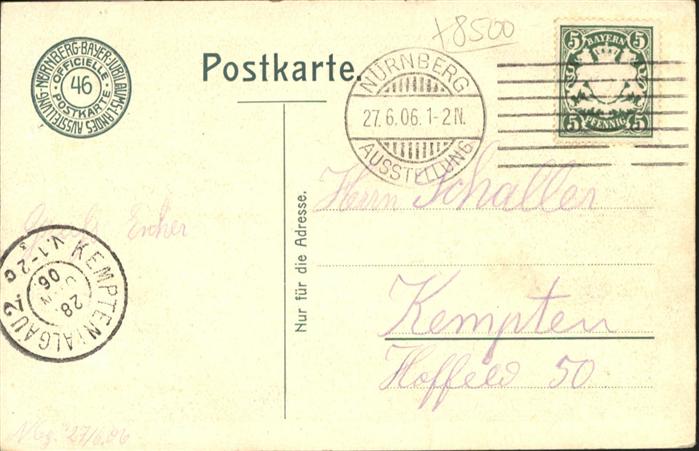 NÜRNBERG-BAYER-JUBILÄUMS-LANDES-AUSSTELLUNG-
OFFICIELLE
46
POSTKARTE
Postkarte.
+8500
NÜRNBERG
27.6.06.1-2N.
AUSSTELLUNG
BAYERN
5 5
5 5
PFENNIG
Nur für die Adresse.
Herrn Schaller
Kempten
Hoffeld 50
KEMPTEN I. ALGÄU 2
28.
JUN
06.
V. 1-2
27/6.06